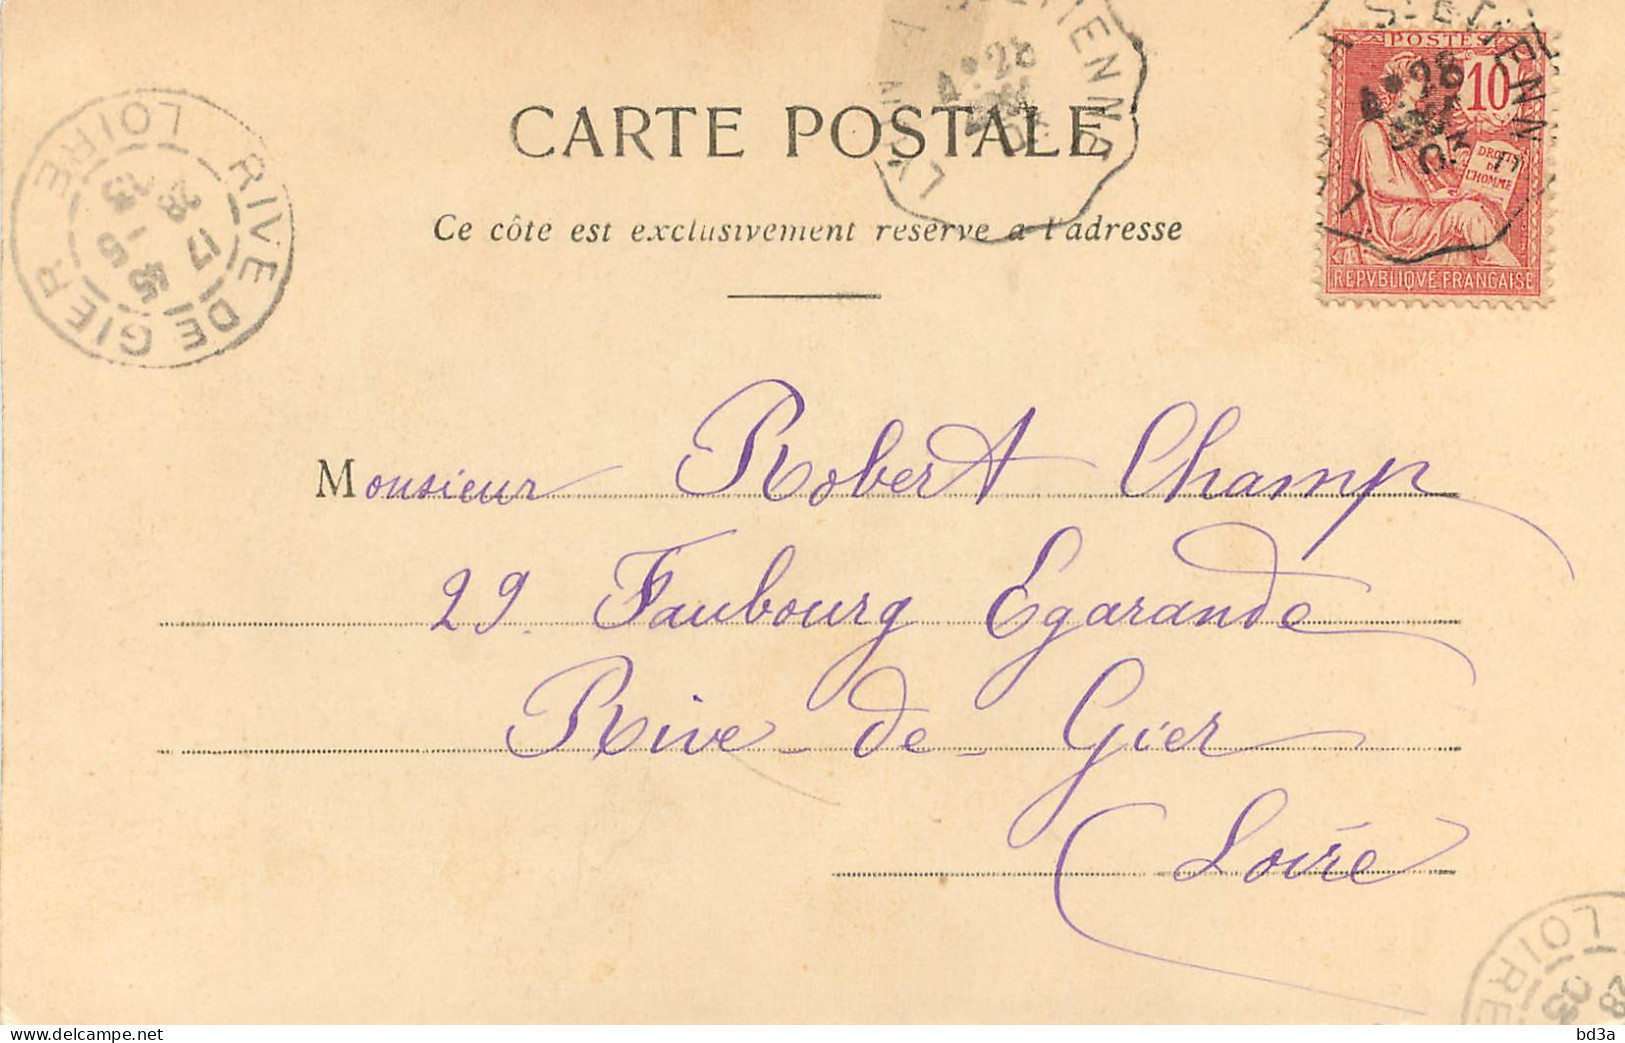 CARTE POSTALE
Ce côte est exclusivement reserve a l'adresse
POSTES
10
DROITS
DE
L'HOMME
REPVBLIQVE FRANÇAISE
RIVE DE GIER
LOIRE
17 45
28 - 5
03
Monsieur Robert Champ
29. Faubourg Egarande
Rive-de-Gier
Loire
LOIRE
28
03
bd3a